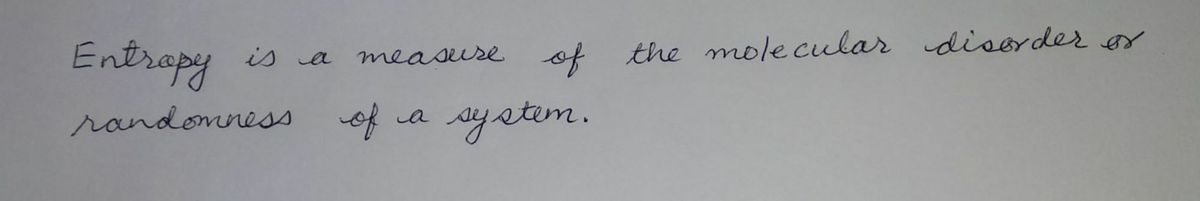 Entropy is a measure of the molecular disorder or
randomness of a system.